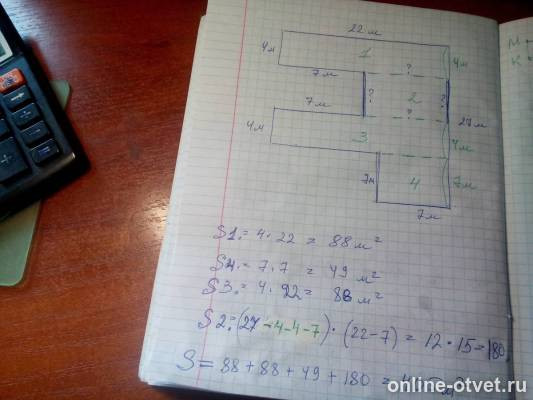 22 м
4м 1 4м
7м ?
? 2 ?
7м ? 27м
4м 3 4м
7м 4 7м
7м
S1.= 4·22 = 88 м²
S4.= 7·7 = 49 м²
S3.= 4·22= 88 м²
S2.=(27-4-4-7)·(22-7) = 12·15=180
S= 88+88+49+180 =
online-otvet.ru
М
К